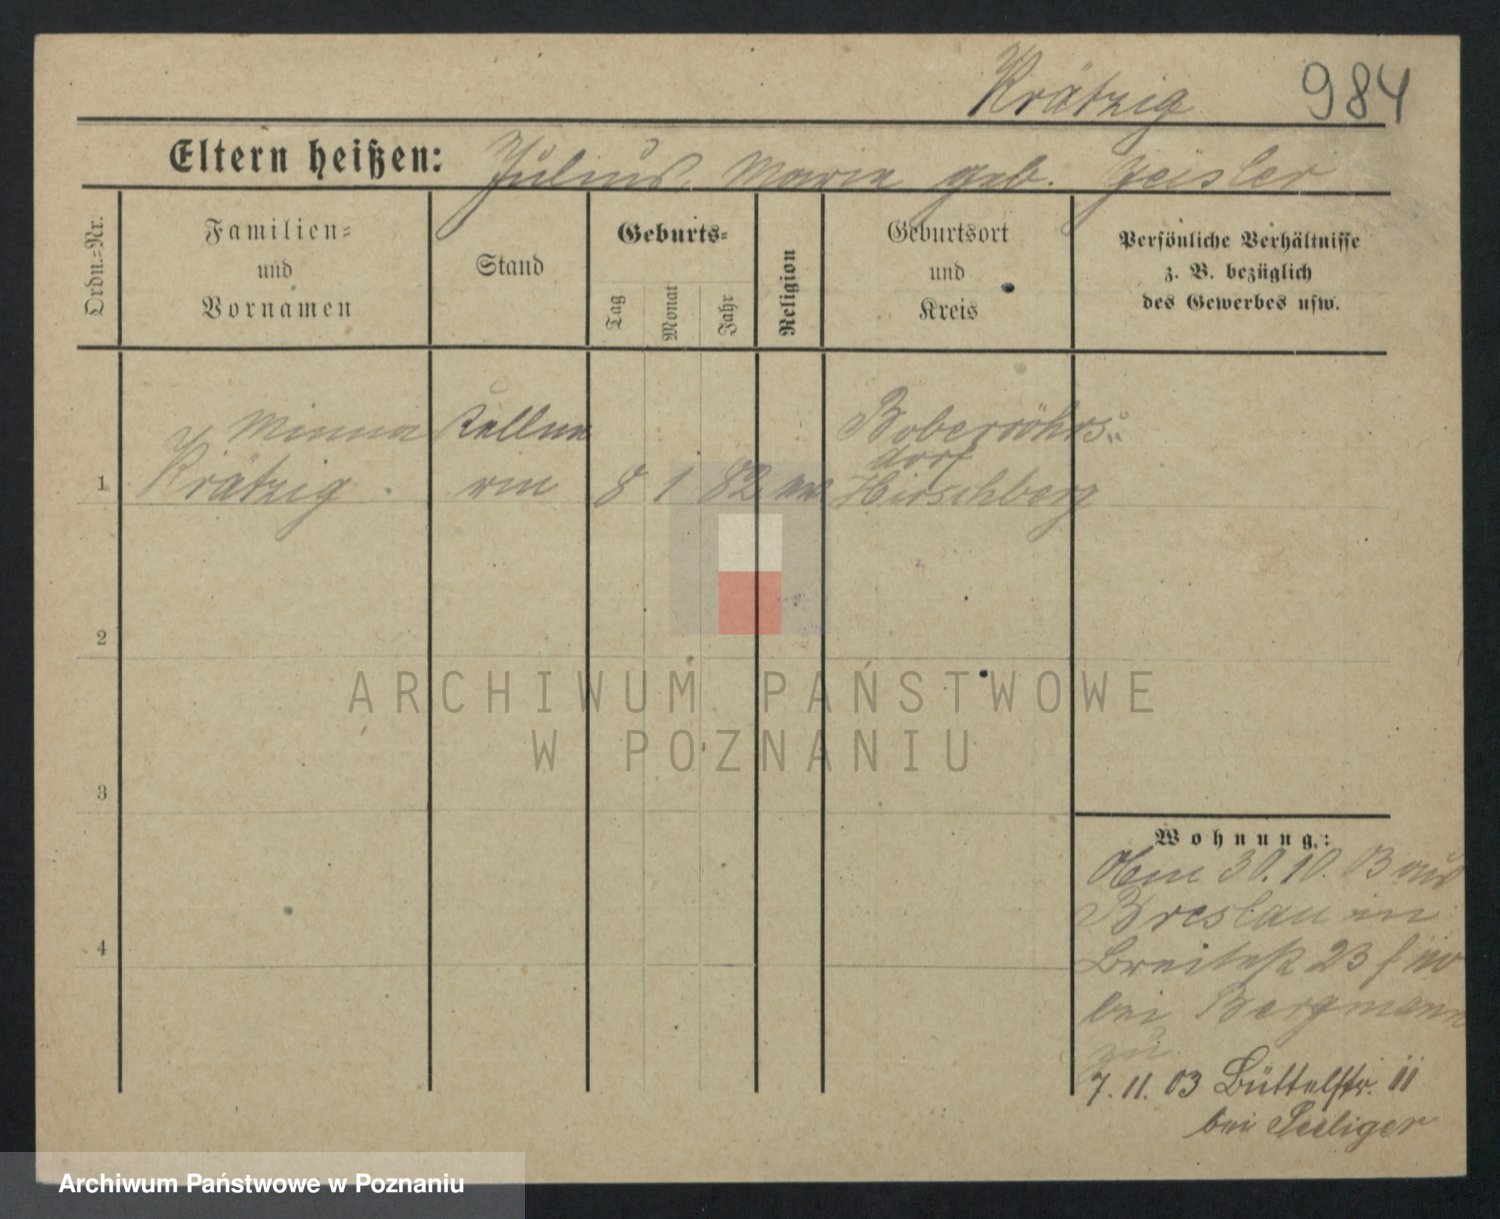 Krätzig 984
Eltern heißen: Julius, Marie geb. Geisler
Ordn.-Nr.
Familien-
und
Vornamen
Stand
Geburts-
Tag
Monat
Jahr
Religion
Geburtsort
und
Kreis
Persönliche Verhältnisse
z. B. bezüglich
des Gewerbes usw.
1
Minna
Krätzig
Kellne
rin
8 1 82
Boberröhrs-
dorf
Hirschberg
2
3
4
ARCHIWUM PAŃSTWOWE
W POZNANIU
Wohnung:
Am 30.10.03 aus
Breslau in
Breitestr 23
bei Bergmann
zu.
7.11.03 Büttelstr. 11
bei Seeliger
Archiwum Państwowe w Poznaniu